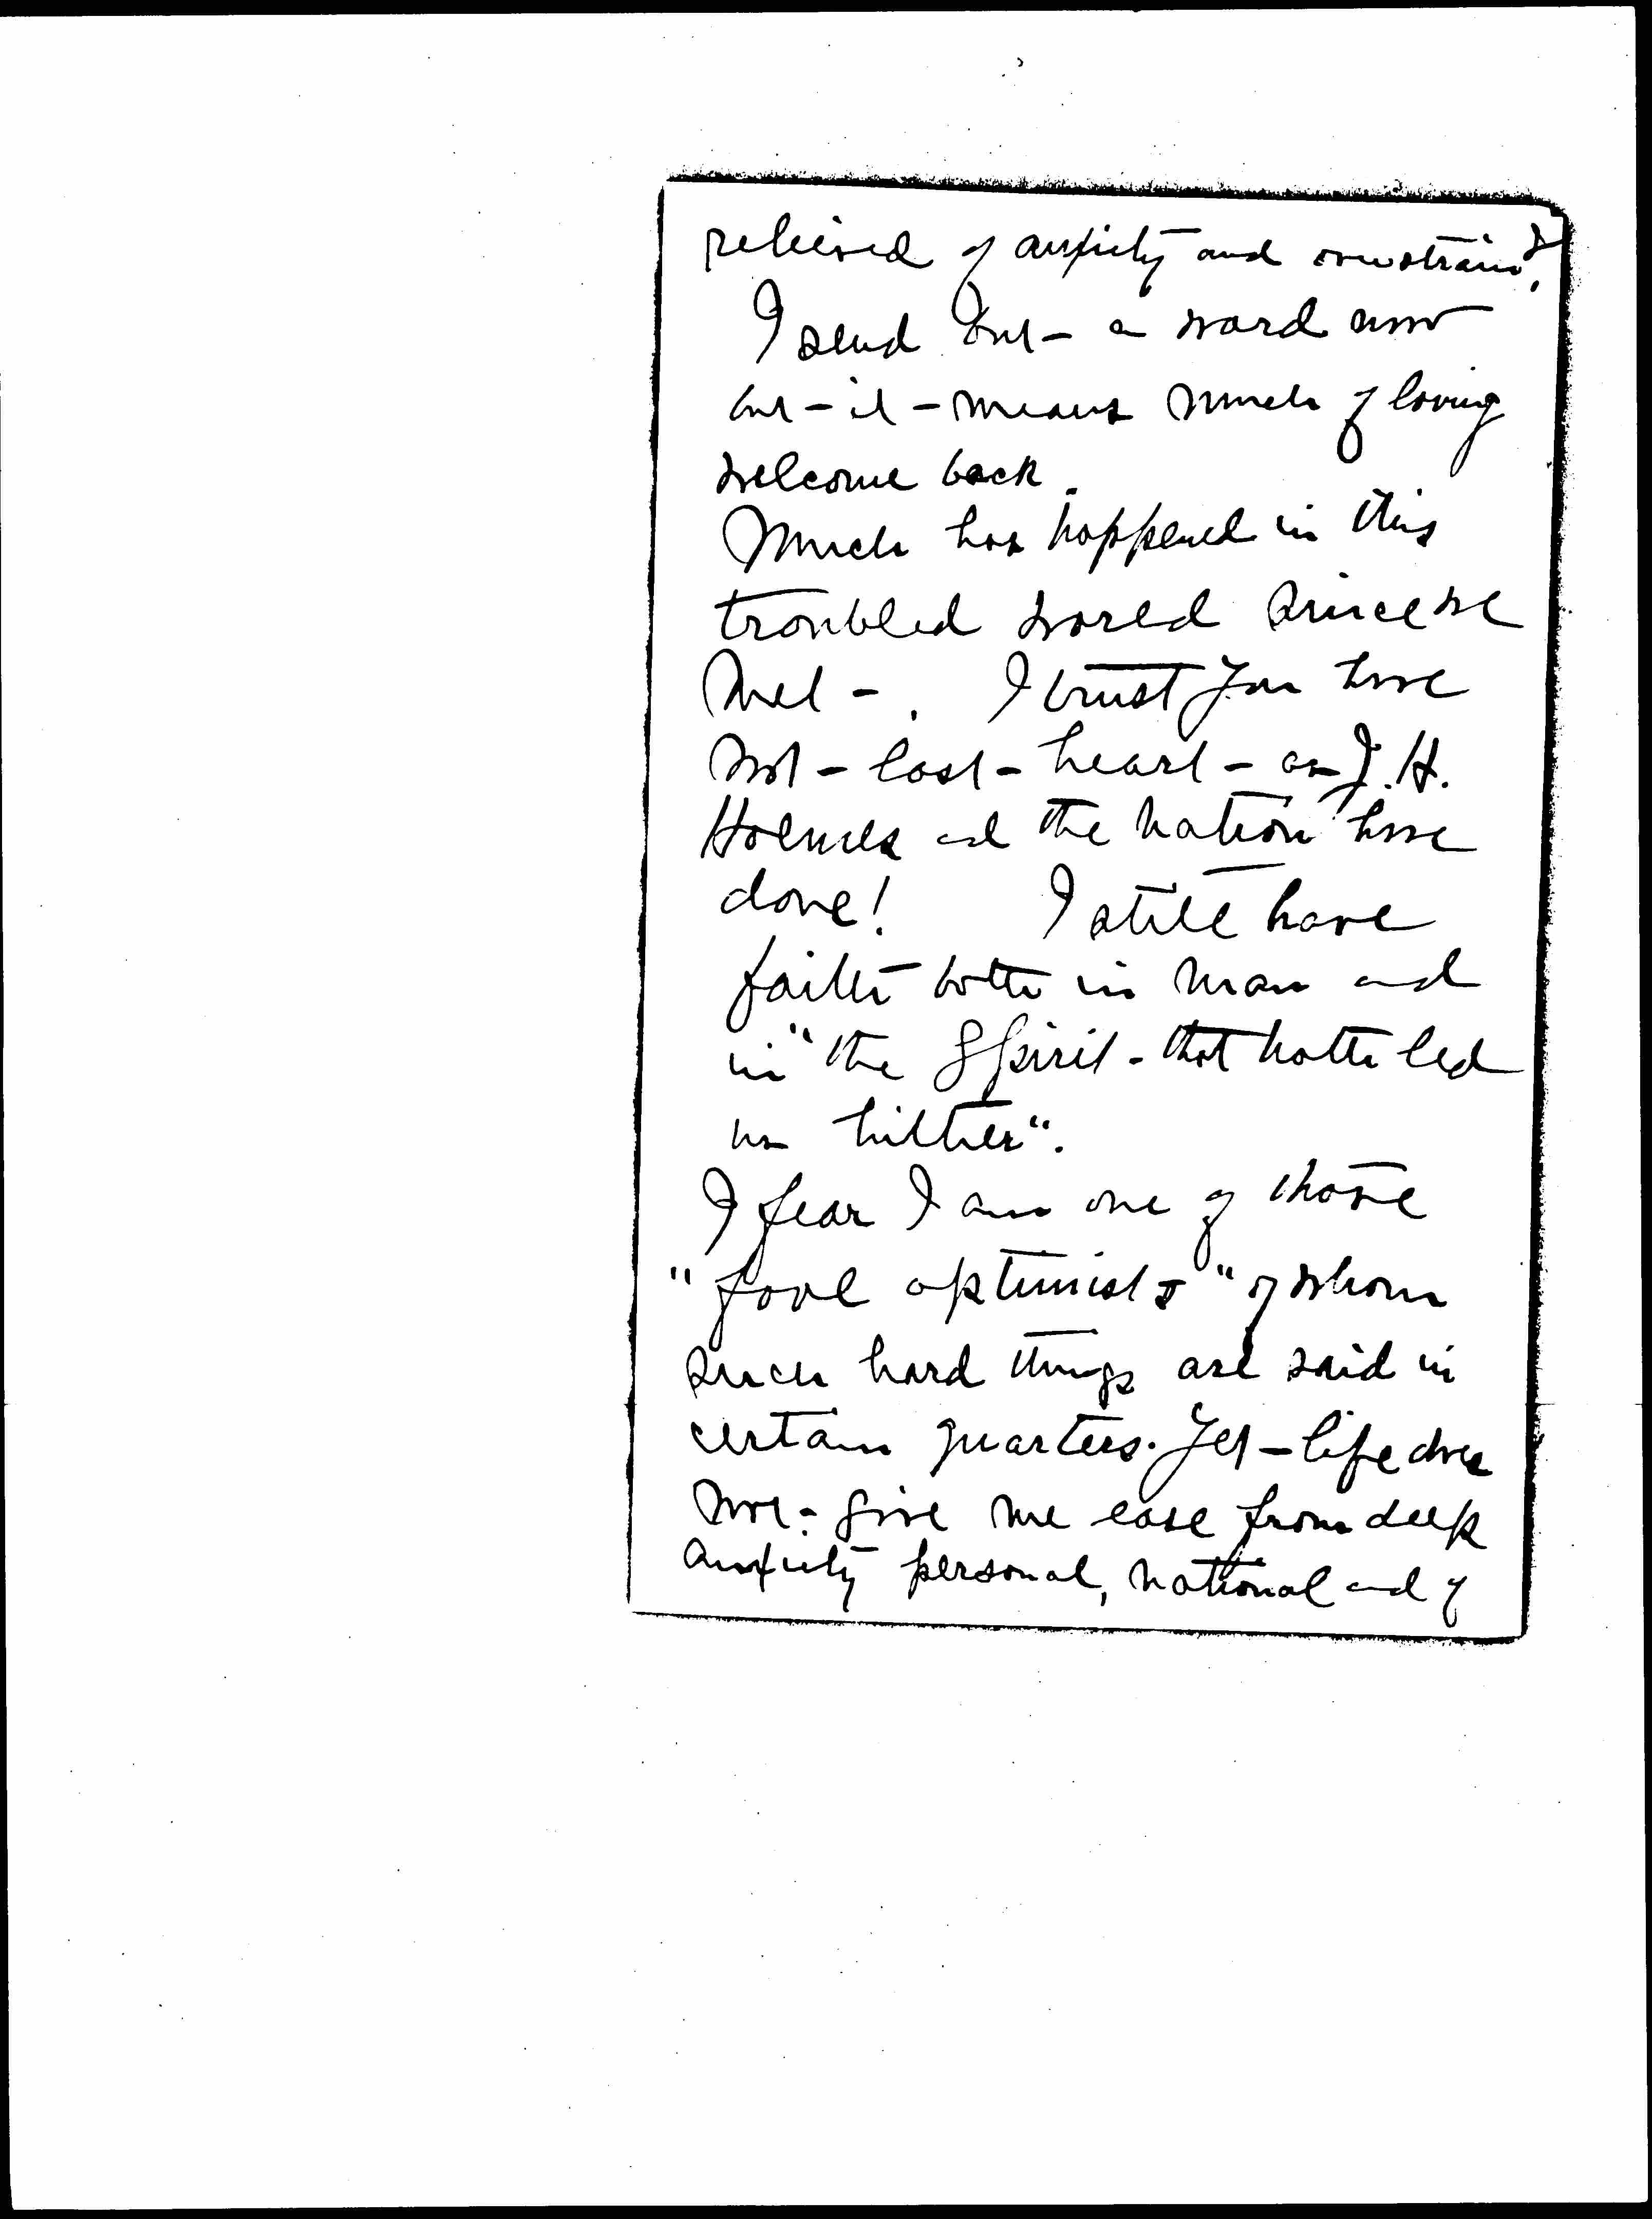 relieved of anxiety and overstrain?
I send but a word now
but it means much of loving
welcome back.
Much has happened in this
troubled world since we
met. I trust you have
not lost heart as J. H.
Holmes and the Nation have
done! I still have
faith both in man and
in "the Spirit that hath led
us hither".
I fear I am one of those
"fool optimists" of whom
such hard things are said in
certain quarters. Yet life does
not give me ease from deep
anxiety personal, national and of